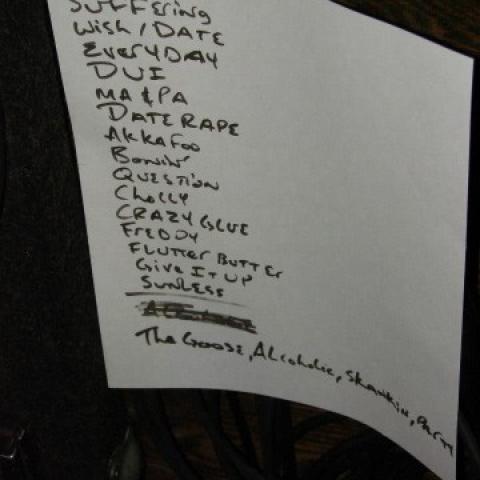 SUFFERING
WISH / DATE
EVERYDAY
DUI
MA & PA
DATE RAPE
AKKAFOO
Bonin'
QUESTION
CHOLLY
CRAZY GLUE
FREDDY
FLUTTER BUTTER
GIVE IT UP
SUNLESS
The Goose, Alcoholic, Skankin, Party